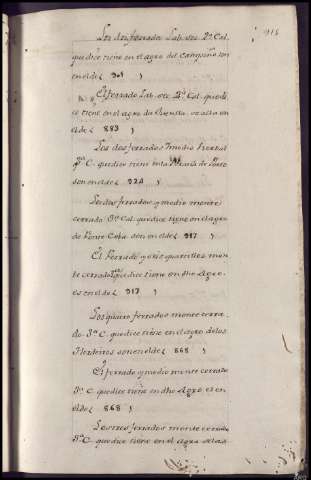 Los dos ferrados Lab. sec. 2ª Cal.
que dice tiene en el agro del Campiño son
en el de ( 901 )
El ferrado Lab. sec. 2ª Cal. que di
ce tiene en el agro da se alla en
el de ( 883 )
Los dos ferrados y medio
3ª C. que dice tiene en la de
son en el de ( 924 )
Los dos ferrados y medio monte
cerrado 3ª Cal. que dice tiene en el agro
de Ponte son en el de ( 917 )
El Ferrado y seis quartillos mon
te cerrado que dice tiene en dho Agro.
es en el de ( 917 )
Los quatro ferrados monte cerra
do 3ª C. que dice tiene en el agro de los
Herdeiros son en el de ( 868 )
El ferrado y medio monte cerrado
3ª C. que dice tiene en dho Agro es en
el de ( 868 )
Los tres ferrados monte cerrado
3ª C. que dice tiene en el agro de las